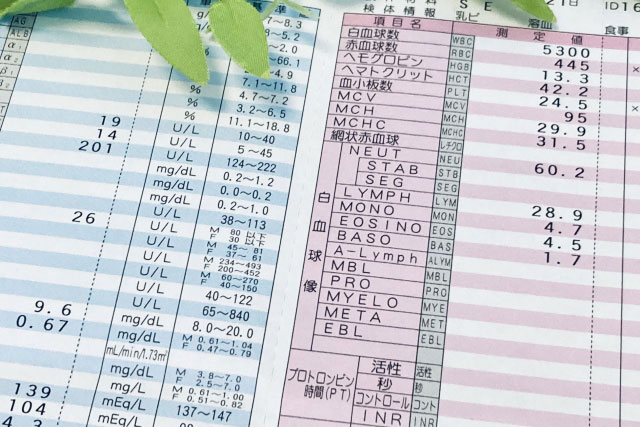 7~8.3
~5.2
~2.0
~66.1
~4.9
% 7.1~11.8
% 4.7~7.2
% 3.2~6.5
11.1~18.8
19 U/L 10~40
14 U/L 5~45
201 U/L 124~222
mg/dL 0.2~1.2
mg/dL 0.0~0.2
mg/dL 0.2~1.0
U/L 38~113
26 U/L M 80 以下
F 30 以下
U/L M 45~81
F 37~61
U/L M 234~493
F 200~452
U/L M 60~270
F 40~150
U/L 40~122
U/L 65~840
9.6 mg/dL 8.0~20.0
0.67 mg/dL M 0.61~1.04
F 0.47~0.79
mL/min/1.73㎡
mg/dL M 3.8~7.0
F 2.5~7.0
mg/L M 0.61~1.00
F 0.51~0.82
139 mEq/L 137~147
104 mEq
検体情報 乳ビ 溶血 食事
項目名 測定値
白血球数 WBC 5300
赤血球数 RBC 445
ヘモグロビン HGB 13.3
ヘマトクリット HCT 42.2
血小板数 PLT 24.5
MCV MCV 95
MCH MCH 29.9
MCHC MCHC 31.5
網状赤血球 レチクロ
白血球像
NEUT NEU 60.2
STAB STB
SEG SEG
LYMPH LYM 28.9
MONO MON 4.7
EOSINO EOS 4.5
BASO BAS 1.7
A-Lymph ALYM
MBL MBL
PRO PRO
MYELO MYE
META MET
EBL EBL
プロトロンビン時間(PT)
活性 活性
秒 秒
コントロール コント
INR INR